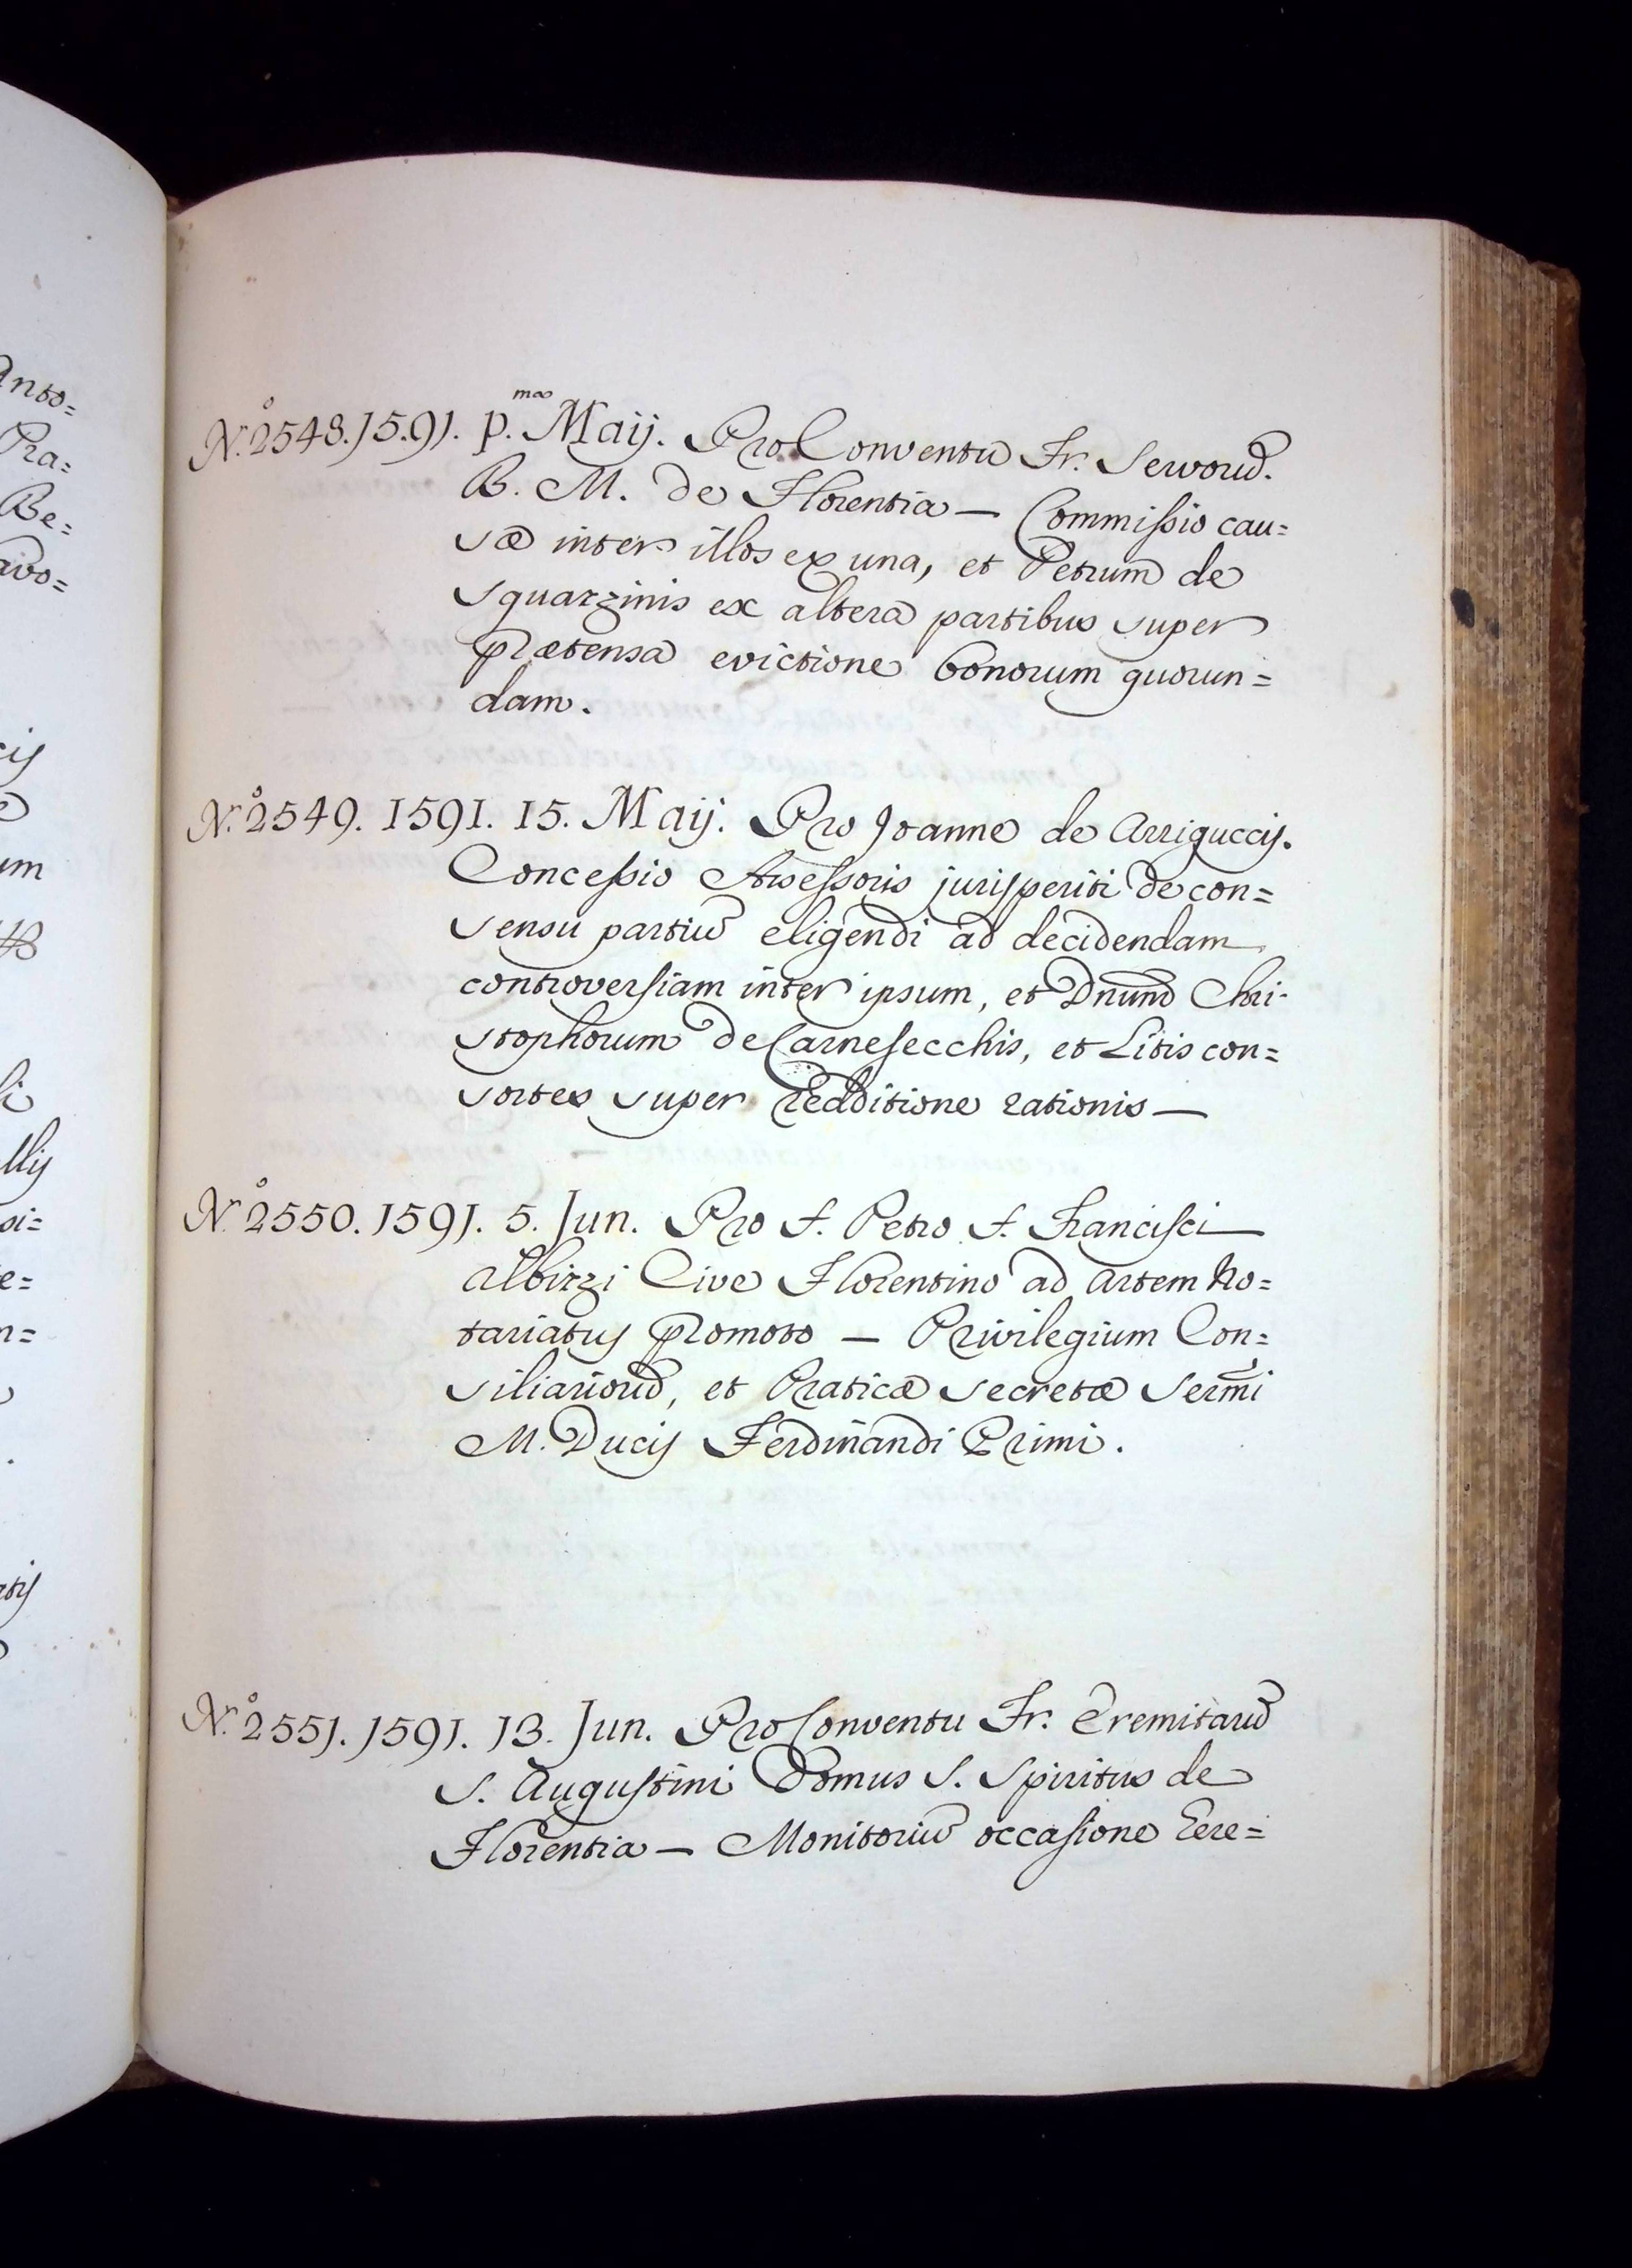 Anto=
Pra=
Be=
avo=
um
lly
si=
e=
n=
N.º 2548. 15.91. p.mo Maij. Pro Conventu Fr. Servorū.
B. M. de Florentia — Commissio cau=
sæ inter illos ex una, et Petrum de
Squarzinis ex altera partibus super
prætensa evictione bonorum quorun=
dam.
N.º 2549. 1591. 15. Maij. Pro Joanne de Arriguccijs.
Concessio Assessoris jurisperiti de con=
sensu partiū eligendi ad decidendam
controversiam inter ipsum, et Dnum Chri-
stophorum de Carnesecchis, et Litis con=
sortes super redditione rationis —
N.º 2550. 1591. 5. Jun. Pro S. Petro S. Francisci
Albizzi Cive Florentino ad Artem No=
tariatus promoto — Privilegium Con=
siliariorū, et Praticæ Secretæ Sermi
M. Ducis Ferdinandi Primi.
N.º 2551. 1591. 13. Jun. Pro Conventu Fr. Eremitarū
S. Augustini Domus S. Spiritus de
Florentia — Monitoriū occasione Eere=